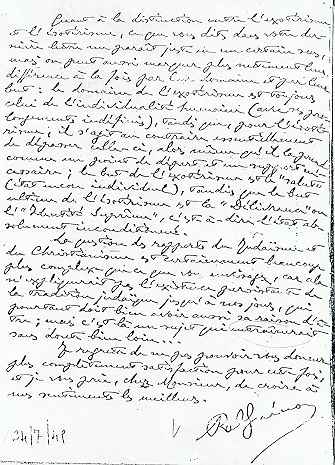 Quant à la distinction entre l'exotérisme
et l'ésotérisme, ce que vous dites dans votre der-
nière lettre me paraît juste en un certain sens,
mais on peut aussi marquer plus nettement leur
différence à la fois par leur domaine et par leur
but: le domaine de l'exotérisme est toujours
celui de l'individualité humaine (avec ses pro-
longements indéfinis), tandis que, pour l'ésoté-
risme, il s'agit au contraire essentiellement
de dépasser celle-ci, alors même qu'il la prend
comme un point de départ et un support né-
cessaire; le but de l'exotérisme est le "salut"
(état encore individuel), tandis que le but
ultime de l'ésotérisme est la "Délivrance" ou
l'"Identité Suprême", c'est-à-dire l'état ab-
solument inconditionné.
La question des rapports du Judaïsme et
du Christianisme est certainement beaucoup
plus complexe que ce que vous envisagez, car cela
n'expliquerait pas l'existence persistante de
la tradition judaïque jusqu'à nos jours, qui
pourtant doit bien avoir aussi sa raison d'ê-
tre; mais c'est là un sujet qui entraînerait
sans doute bien loin...
Je regrette de ne pas pouvoir vous donner
plus complètement satisfaction pour cette fois,
et je vous prie, cher Monsieur, de croire à
mes sentiments les meilleurs.
René Guénon
24/7/49